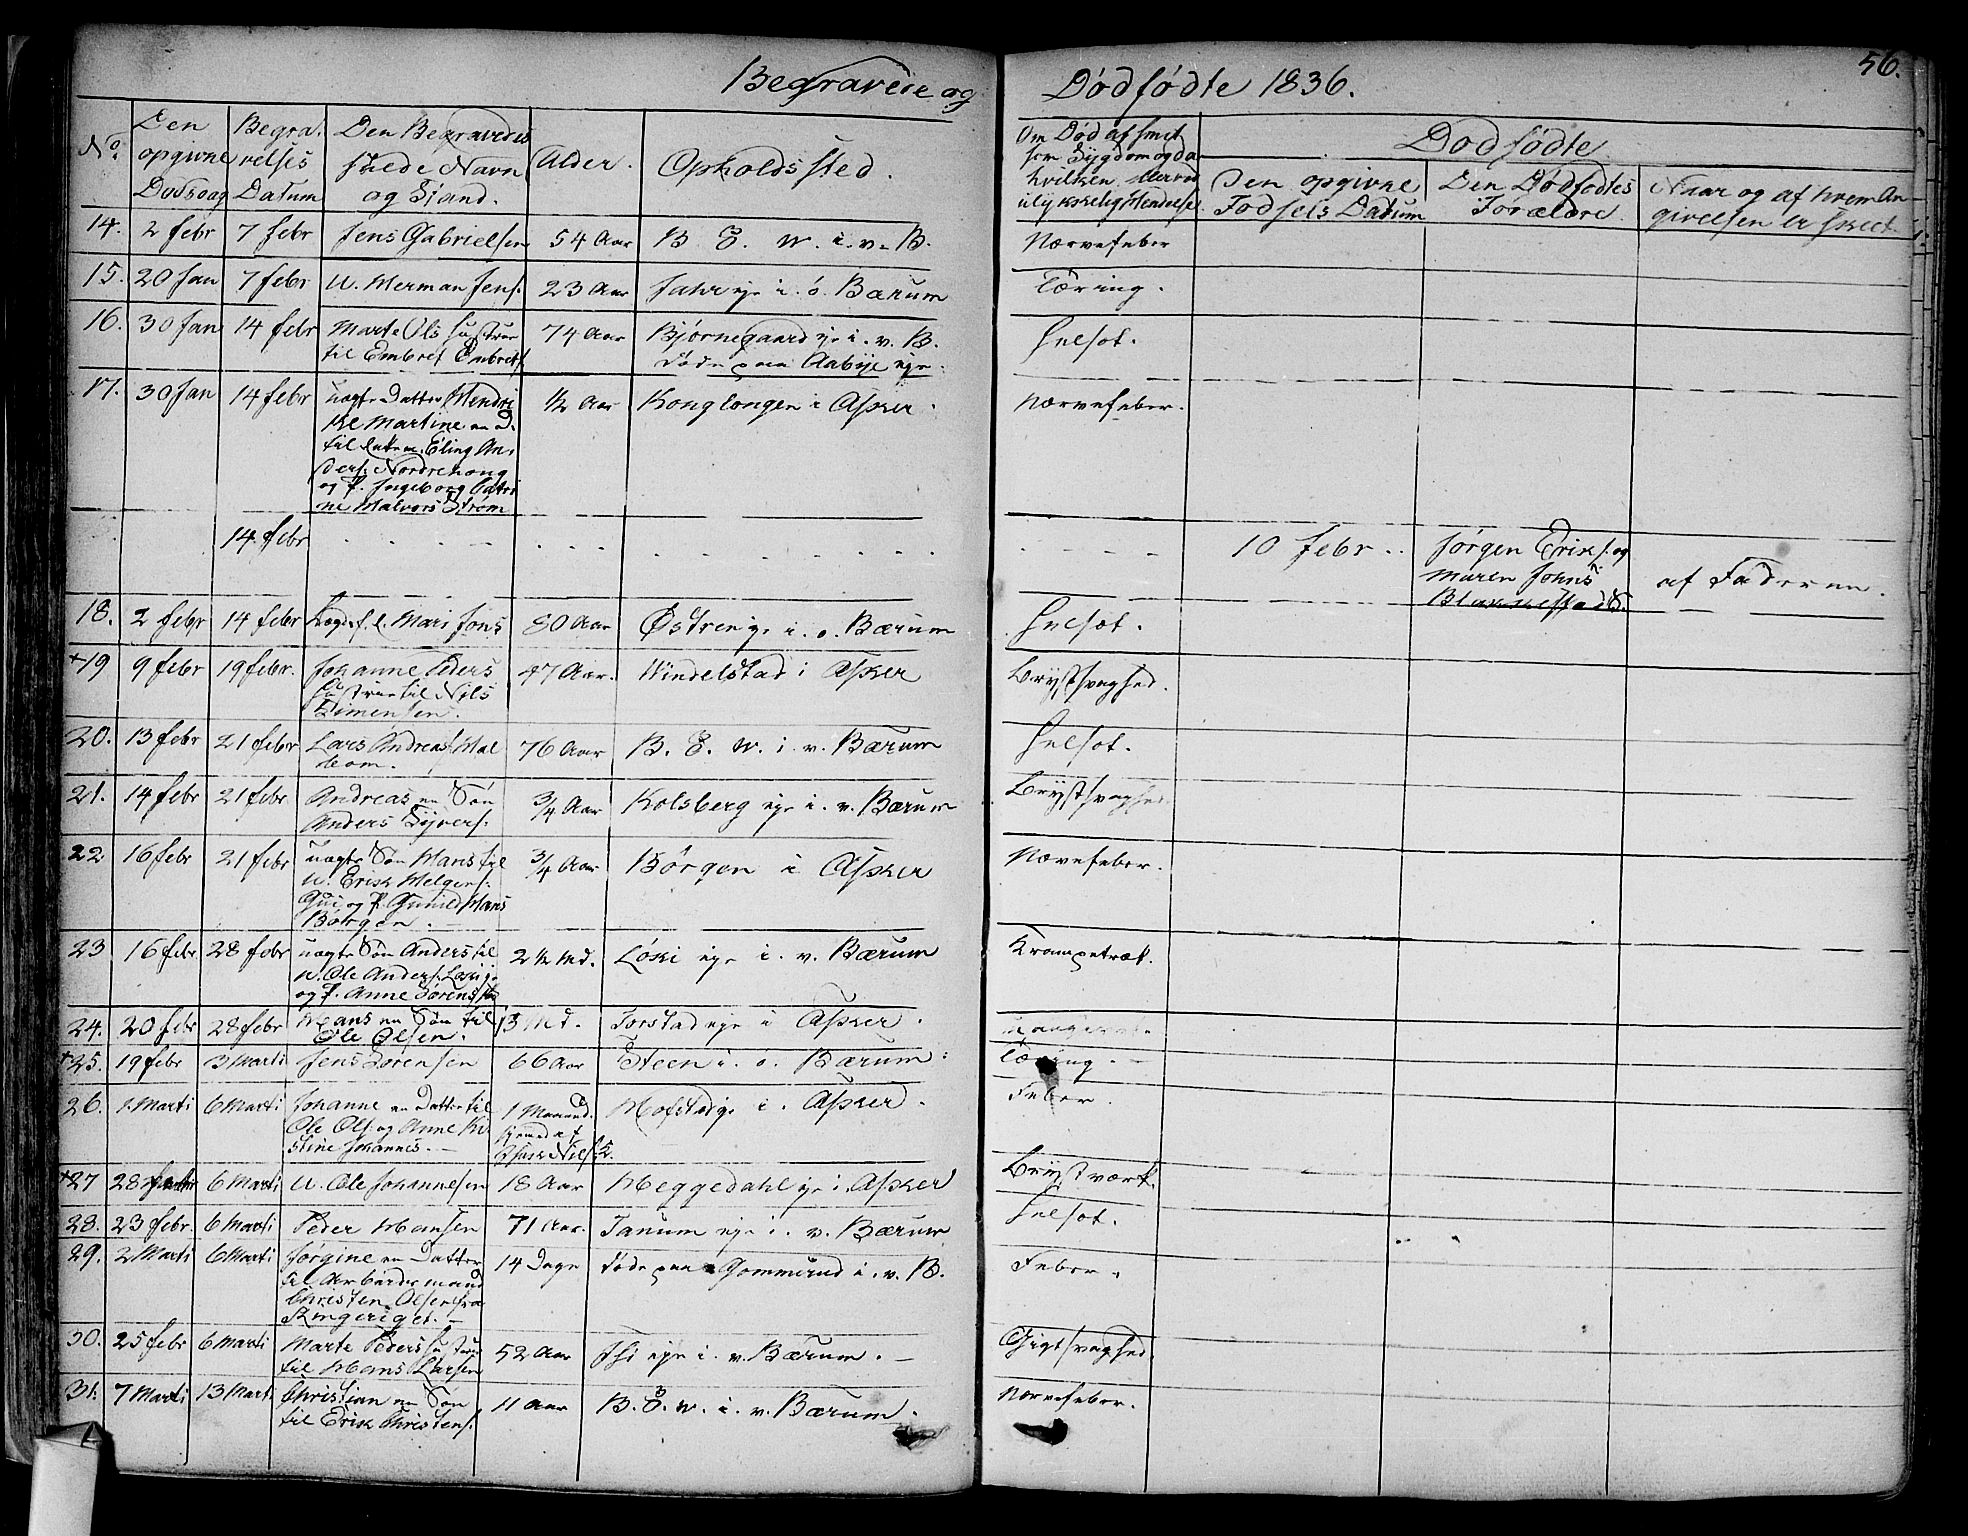 56.
Begravede og Dødfødte 1836.
No. Den opgivne Dødsdag Begravelses Datum Den Begravedes fulde Navn og Stand. Alder. Opholdssted. Om Død af smitsom Sygdom og da hvilken Dødfødte
Den opgivne Fødsels Datum Den Dødfødtes Forældre Naar og af hvem Angivelsen er skeet
14. 2 febr 7 febr Jens Gabrielsen 54 Aar B. E. W. i. v. B. Nervefeber
15. 20 Jan 7 febr U. Herman Jens. 23 Aar Jahr eje i. ø. Bærum Tæring.
16. 30 Jan 14 febr Marte Ols Hustrue 74 Aar Bjørnegaard eje i. v. B. Helsot.
til Embret Embrets. døde paa Aabye eje.
17. 30 Jan 14 febr uægte Datter Hendri ½ Aar Konglongen i Asker. Nervefeber.
ke Martine en D.
til Eling An
ders. Nordre
og P. Ingeborg Catri
ne Halvors Strøm
14. febr 10 febr.. Jørgen Eriks. og
Maren Johns af Faderen.
Blakkestad.
18. 2 febr 14 febr Lægdsl. Mari Jons 80 Aar Østren eje i. ø. Bærum Helsot.
+19 9 febr 19 febr. Johanne Peders 47 Aar. Windelstad i Asker Brystsvaghed.
Hustrue til Nils
Simensen.
20. 13 febr 21 febr Lars Andreas. 76 Aar B. E. W. i. v. Bærum Helsot.
21. 14 febr 21 febr Andreas en Søn ¾ Aar Kolsberg eje i. v. Bærum Brystsvaghed
Anders Syvers.
22 16 febr 21 febr uægte Søn Hans til ¾ Aar Børgen i Asker Nervefeber.
U. Erik Helgers.
Gui og P. Gunild Hans
Børgen.
23 16 febr 28 febr uægte Søn Anders til 2½ Md. Løki eje i. v. Bærum Krampetræk.
U. Ole Anders. Løki eje
og P. Anne Sørens
24. 20 febr 28 febr Hans en Søn til 13 Md. Torstad eje i Asker.
Ole Olsen.
+25. 19 febr 3 Marti Jens Sørensen 66 Aar Steen i. ø. Bærum. Tæring.
26. 1. Marti 6 Marti Johanne en Datter til 1 Maaned. Hofstad eje i. Asker. Feber.
Ole Ols. og Anne Kri
stine Johannes.
+27 28 febr 6 Marti U. Ole Johannesen 18 Aar Heggedahl eje i. Asker Brystværk.
28. 23 febr. 6 Marti Peder Hansen 71 Aar. Tanum eje i. v. Bærum Helsot.
29. 2 Marti 6 Marti Jorgine en Datter 14 Dage døde paa Gommerud i. v. B. Feber.
til Arbeidsmand
Christen Olsen fra
Ringeriget.
30. 25 febr 6 Marti Marte Peders Hustrue 52 Aar Thi eje i. v. Bærum. Gigtsvaghed.
til Hans Larsen
31. 7 Marti 13 Marti Christian en Søn 11 Aar B. E. W. i. v. Bærum. Nervefeber.
til Erik Christens.